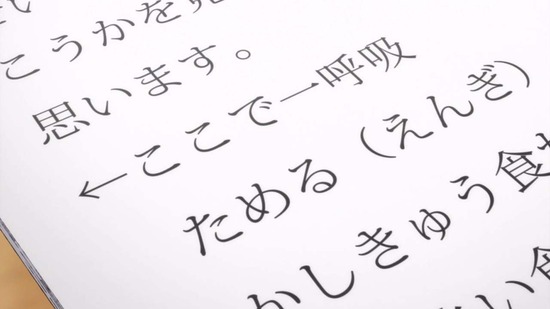 こうかを
思います。
←ここで一呼吸
ためる（えんぎ）
かしきゅう食
い食